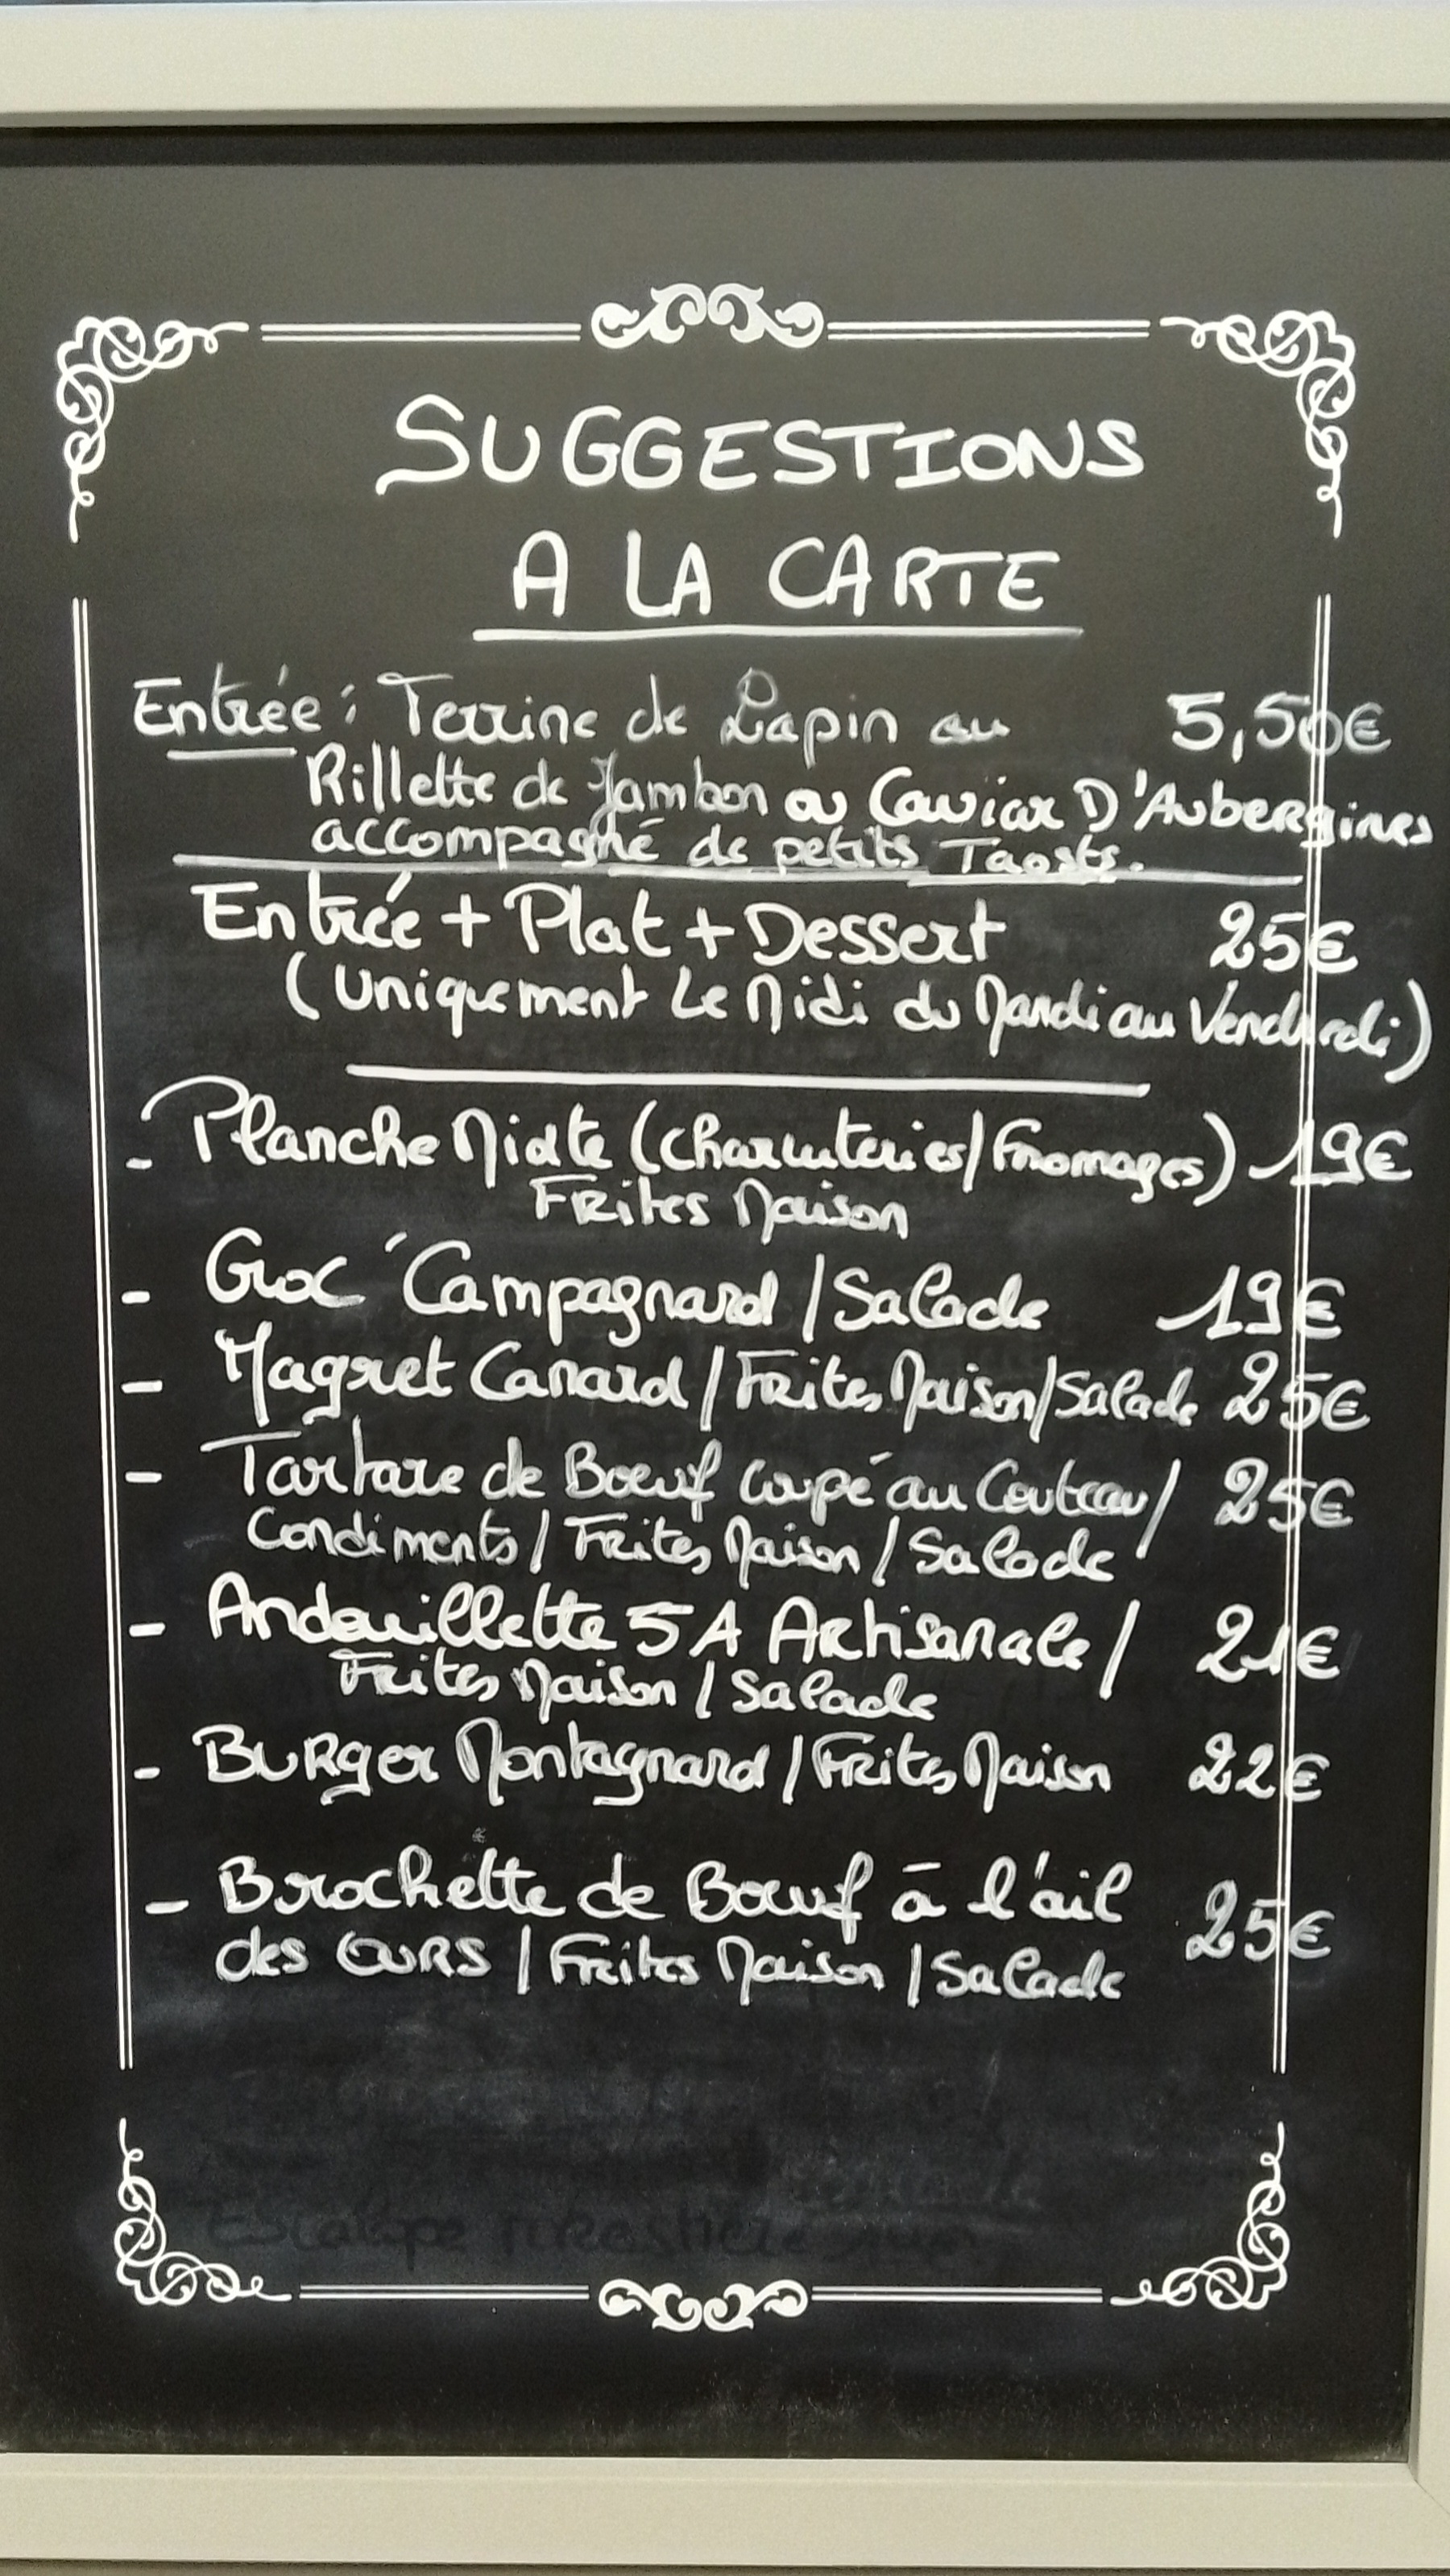 SUGGESTIONS
A LA CARTE
Entrée : Terrine de Lapin au 5,50€
Rillette de Jambon ou Caviar D'Aubergines
accompagné de petits Taosts.
Entrée + Plat + Dessert 25€
(Uniquement Le Midi du Mardi au Vendredi)
- Planche Mixte (Charcuteries/Fromages) 19€
Frites Maison
- Croc' Campagnard / Salade 19€
- Magret Canard / Frites Maison/Salade 25€
- Tartare de Boeuf coupé au Couteau/ 25€
Condiments / Frites Maison / Salade
- Andouillette 5A Artisanale / 21€
Frites Maison / Salade
- Burger Montagnard / Frites Maison 22€
- Brochette de Boeuf à l'ail 25€
des OURS / Frites Maison / Salade
Escalope Forestière